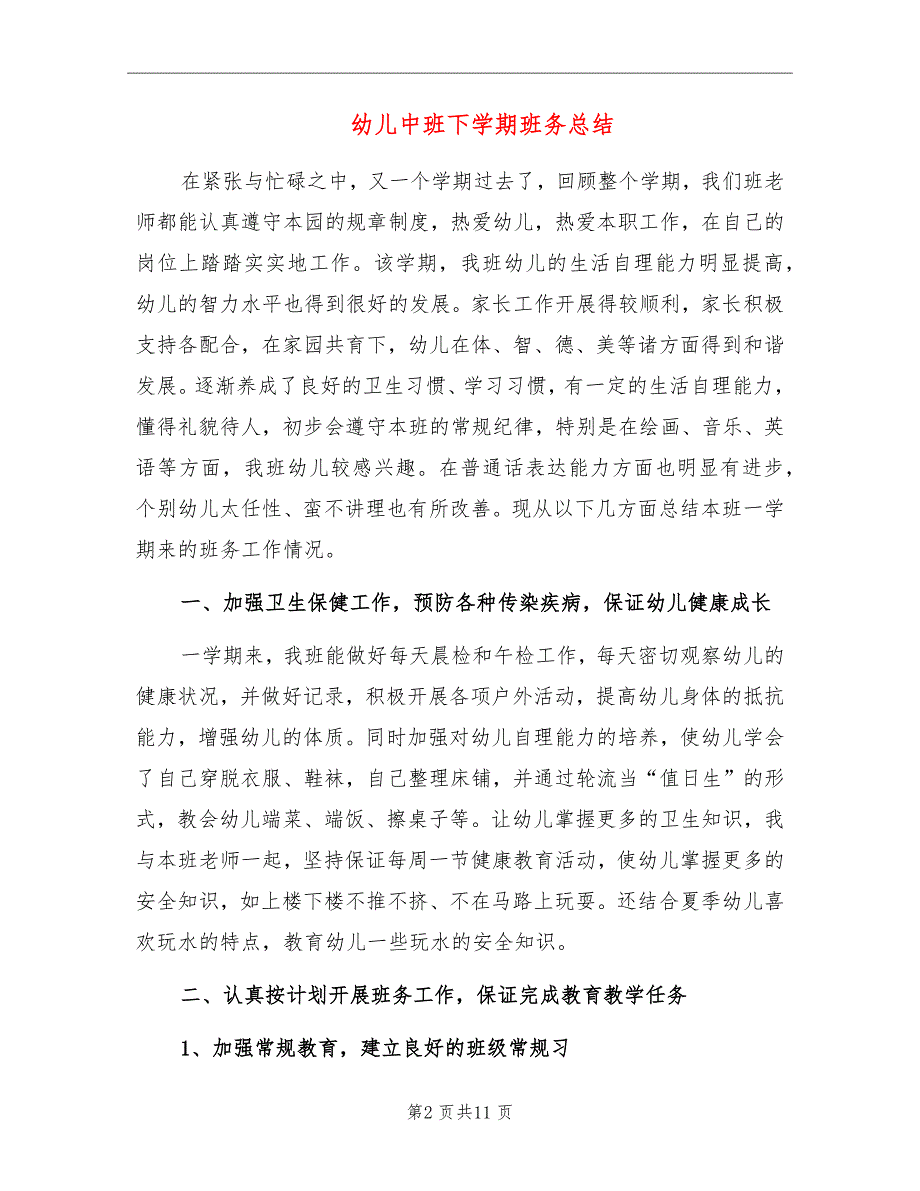 幼儿中班下学期班务总结
在紧张与忙碌之中，又一个学期过去了，回顾整个学期，我们班老
师都能认真遵守本园的规章制度，热爱幼儿，热爱本职工作，在自己的
岗位上踏踏实实地工作。该学期，我班幼儿的生活自理能力明显提高，
幼儿的智力水平也得到很好的发展。家长工作开展得较顺利，家长积极
支持各配合，在家园共育下，幼儿在体、智、德、美等诸方面得到和谐
发展。逐渐养成了良好的卫生习惯、学习习惯，有一定的生活自理能力，
懂得礼貌待人，初步会遵守本班的常规纪律，特别是在绘画、音乐、英
语等方面，我班幼儿较感兴趣。在普通话表达能力方面也明显有进步，
个别幼儿太任性、蛮不讲理也有所改善。现从以下几方面总结本班一学
期来的班务工作情况。
一、加强卫生保健工作，预防各种传染疾病，保证幼儿健康成长
一学期来，我班能做好每天晨检和午检工作，每天密切观察幼儿的
健康状况，并做好记录，积极开展各项户外活动，提高幼儿身体的抵抗
能力，增强幼儿的体质。同时加强对幼儿自理能力的培养，使幼儿学会
了自己穿脱衣服、鞋袜，自己整理床铺，并通过轮流当“值日生”的形
式，教会幼儿端菜、端饭、擦桌子等。让幼儿掌握更多的卫生知识，我
与本班老师一起，坚持保证每周一节健康教育活动，使幼儿掌握更多的
安全知识，如上楼下楼不推不挤、不在马路上玩耍。还结合夏季幼儿喜
欢玩水的特点，教育幼儿一些玩水的安全知识。
二、认真按计划开展班务工作，保证完成教育教学任务
1、加强常规教育，建立良好的班级常规习
第2 页共11 页